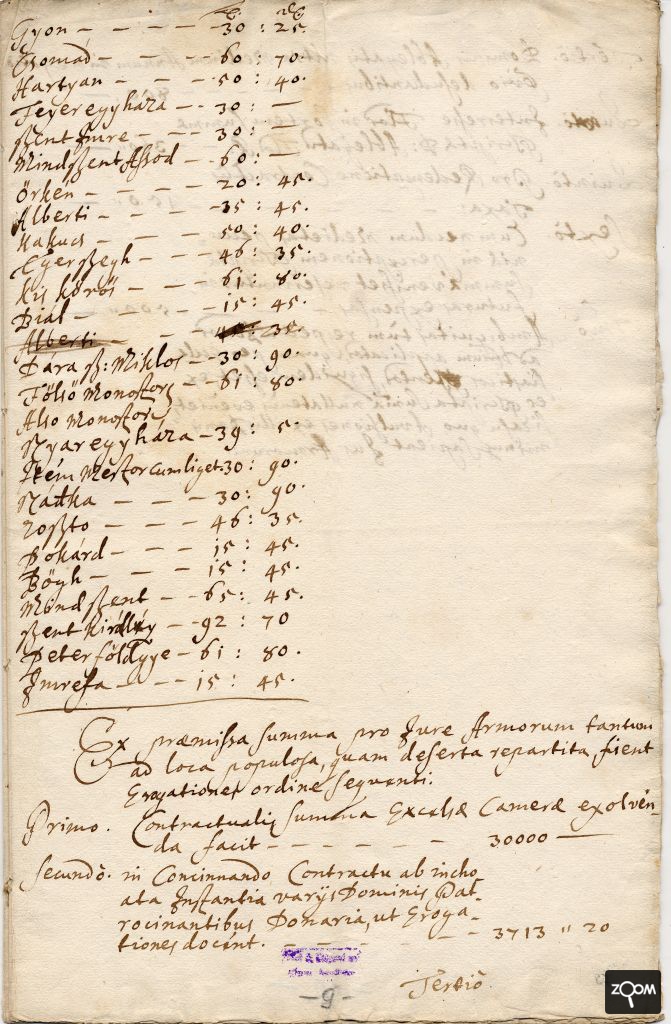 Gyon - - - - 30 : 25.
Csomád - - - 60 : 70.
Hartyan - - - 50 : 40.
Feyeregyháza - - 30 : —
szent Imre - - 30 : —
Mindszent Assod - 60 : —
Örkén - - - 20 : 45.
Alberti - - - 35 : 45.
Kakucs - - - 50 : 40.
Egerszegh - - 46 : 35.
Kis körös - - 61 : 80.
Bial - - - 15 : 45.
Alberti - - - 35.
Dára sz: Miklos - 30 : 90.
Fölsö Monostor - 61 : 80.
Also Monostor
Nyaregyháza - 39 : 5.
Mestor cum liget. 30 : 90.
- - - 30 : 90.
- - - 46 : 35.
Bokárd - - - 15 : 45.
Bögh - - - 15 : 45.
Mindszent - - 65 : 45.
szent Király - 92 : 70
Peterföldgye - 61 : 80.
Imrefa - - - 15 : 45.
Ex præmissa summa pro Jure Armorum tantum
ad loca populosa, quam deserta repartita, fient
Erogationes ordine sequenti.
Primo. Contractualis summa Excelsæ Cameræ exolvén-
da facit - - - - - 30000 —
Secundò. in Concinnando Contractu ab incho-
ata Instantia varijs Dominis Pat-
rocinantibus Donaria, ut Eroga-
tiones docent. - - - - - 3713 " 20
- 9 -
Tertiò
ZOOM